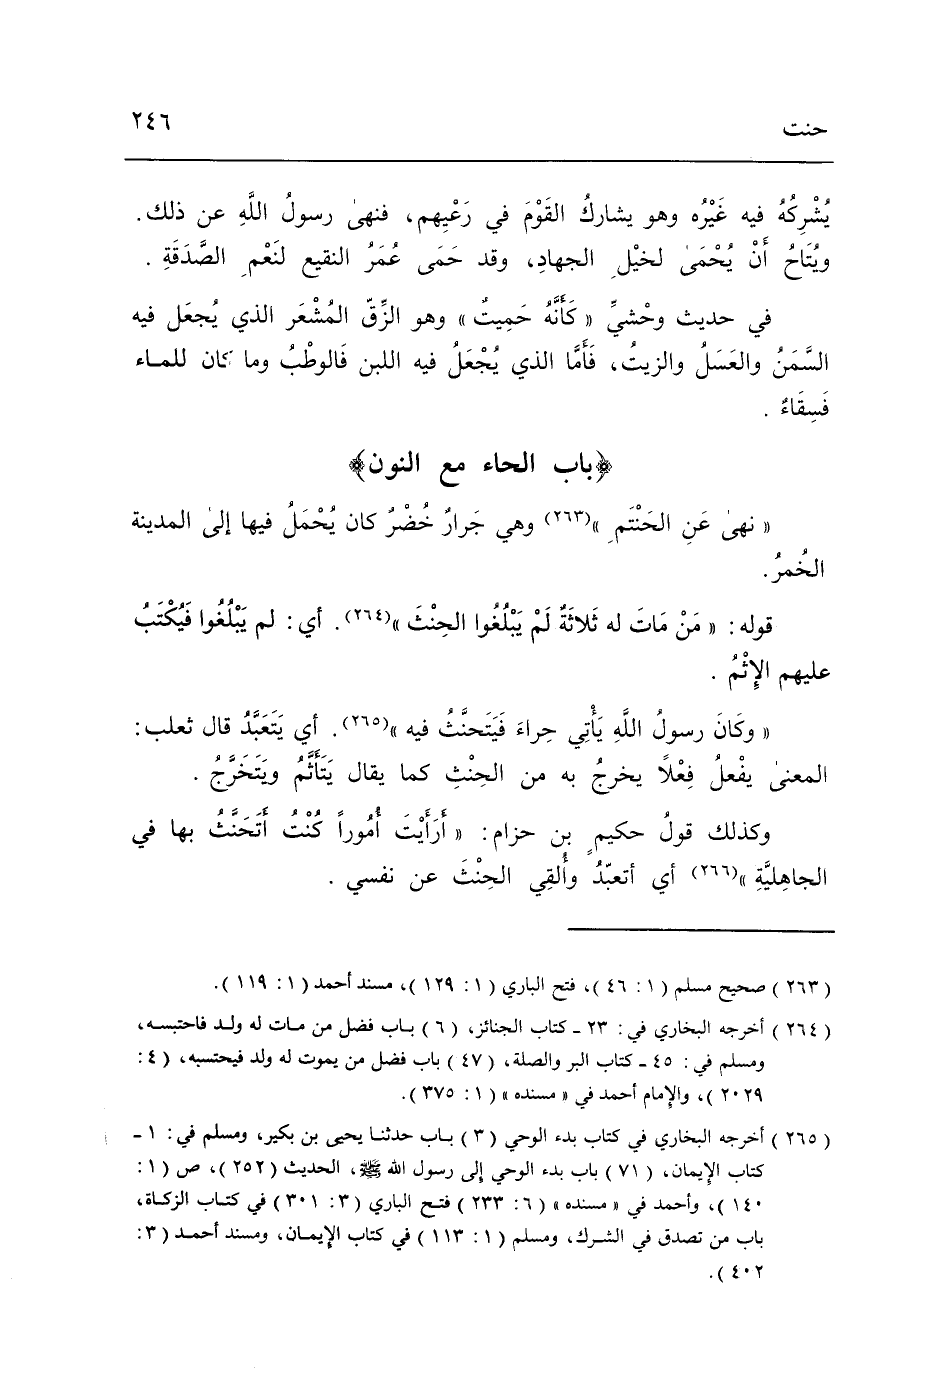 حنت
٢٤٦
يُشْرِكُهُ فيه غَيْرُه وهو يشاركُ القَوْمَ في رَعْيِهم، فنهىٰ رسولُ اللَّهِ عن ذلك.
ويُتَاحُ أَنْ يُحْمَىٰ لخيْلِ الجهادِ، وقد حَمَى عُمَرُ النقيع لنَعْمِ الصَّدَقَةِ.
في حديث وحْشيِّ « كَأَنَّهُ حَمِيتٌ » وهو الزِّقّ المُشْعَر الذي يُجعَل فيه
السَّمَنُ والعَسَلُ والزيتُ، فَأَمَّا الذي يُجْعَلُ فيه اللبن فَالوطْبُ وما كان للمـاء
فَسِقَاءٌ .
﴿باب الحاء مع النون﴾
« نهىٰ عَنِ الحَنْتَمِ »(٢٦٣) وهي جَرارٌ خُضْرٌ كان يُحْمَلُ فيها إلىٰ المدينة
الخُمرُ.
قوله: « مَنْ مَاتَ له ثَلاثَةٌ لَمْ يَبْلُغُوا الحِنْثَ »(٢٦٤). أي: لم يَبْلُغُوا فَيُكْتَبُ
عليهم الإِثْمُ .
« وكَانَ رسولُ اللَّهِ يَأْتِي حِراءَ فَيَتَحنَّثُ فيه »(٢٦٥). أي يَتَعَبَّدُ قال ثعلب:
المعنىٰ يفْعلُ فِعْلاً يخرجُ به من الحِنْثِ كما يقال يَتَأَثَّمُ ويَتَحَرَّجُ .
وكذلك قولُ حكيمٍ بن حزام: « أَرَأَيْتَ أُمُوراً كُنْتُ أَتَحَنَّثُ بها في
الجاهِليَّةِ »(٢٦٦) أي أتعبّدُ وأُلقِي الحنْثَ عن نفسي .
( ٢٦٣ ) صحيح مسلم ( ١: ٤٦ )، فتح الباري ( ١: ١٢٩ )، مسند أحمد ( ١: ١١٩ ).
( ٢٦٤ ) أخرجه البخاري في: ٢٣ ـ كتاب الجنائز، ( ٦ ) بـاب فضل من مـات له ولـد فاحتبسـه،
ومسلم في: ٤٥ ـ كتاب البر والصلة، ( ٤٧ ) باب فضل من يموت له ولد فيحتسبه، ( ٤:
٢٠٢٩ )، والإمام أحمد في « مسنده » ( ١: ٣٧٥ ).
( ٢٦٥ ) أخرجه البخاري في كتاب بدء الوحي ( ٣ ) بـاب حدثنـا يحيى بن بكير، ومسلم في: ١ ـ
كتاب الإيمان، ( ٧١ ) باب بدء الوحي إلى رسول الله ﷺ، الحديث ( ٢٥٢ )، ص ( ١:
١٤٠ )، وأحمد في « مسنده » ( ٦: ٢٣٣ ) فتـح الباري ( ٣: ٣٠١ ) في كتـاب الزكـاة،
باب من تصدق في الشـرك، ومسلم ( ١: ١١٣ ) في كتاب الإيمـان، ومسند أحمـد ( ٣:
٤٠٢ ).